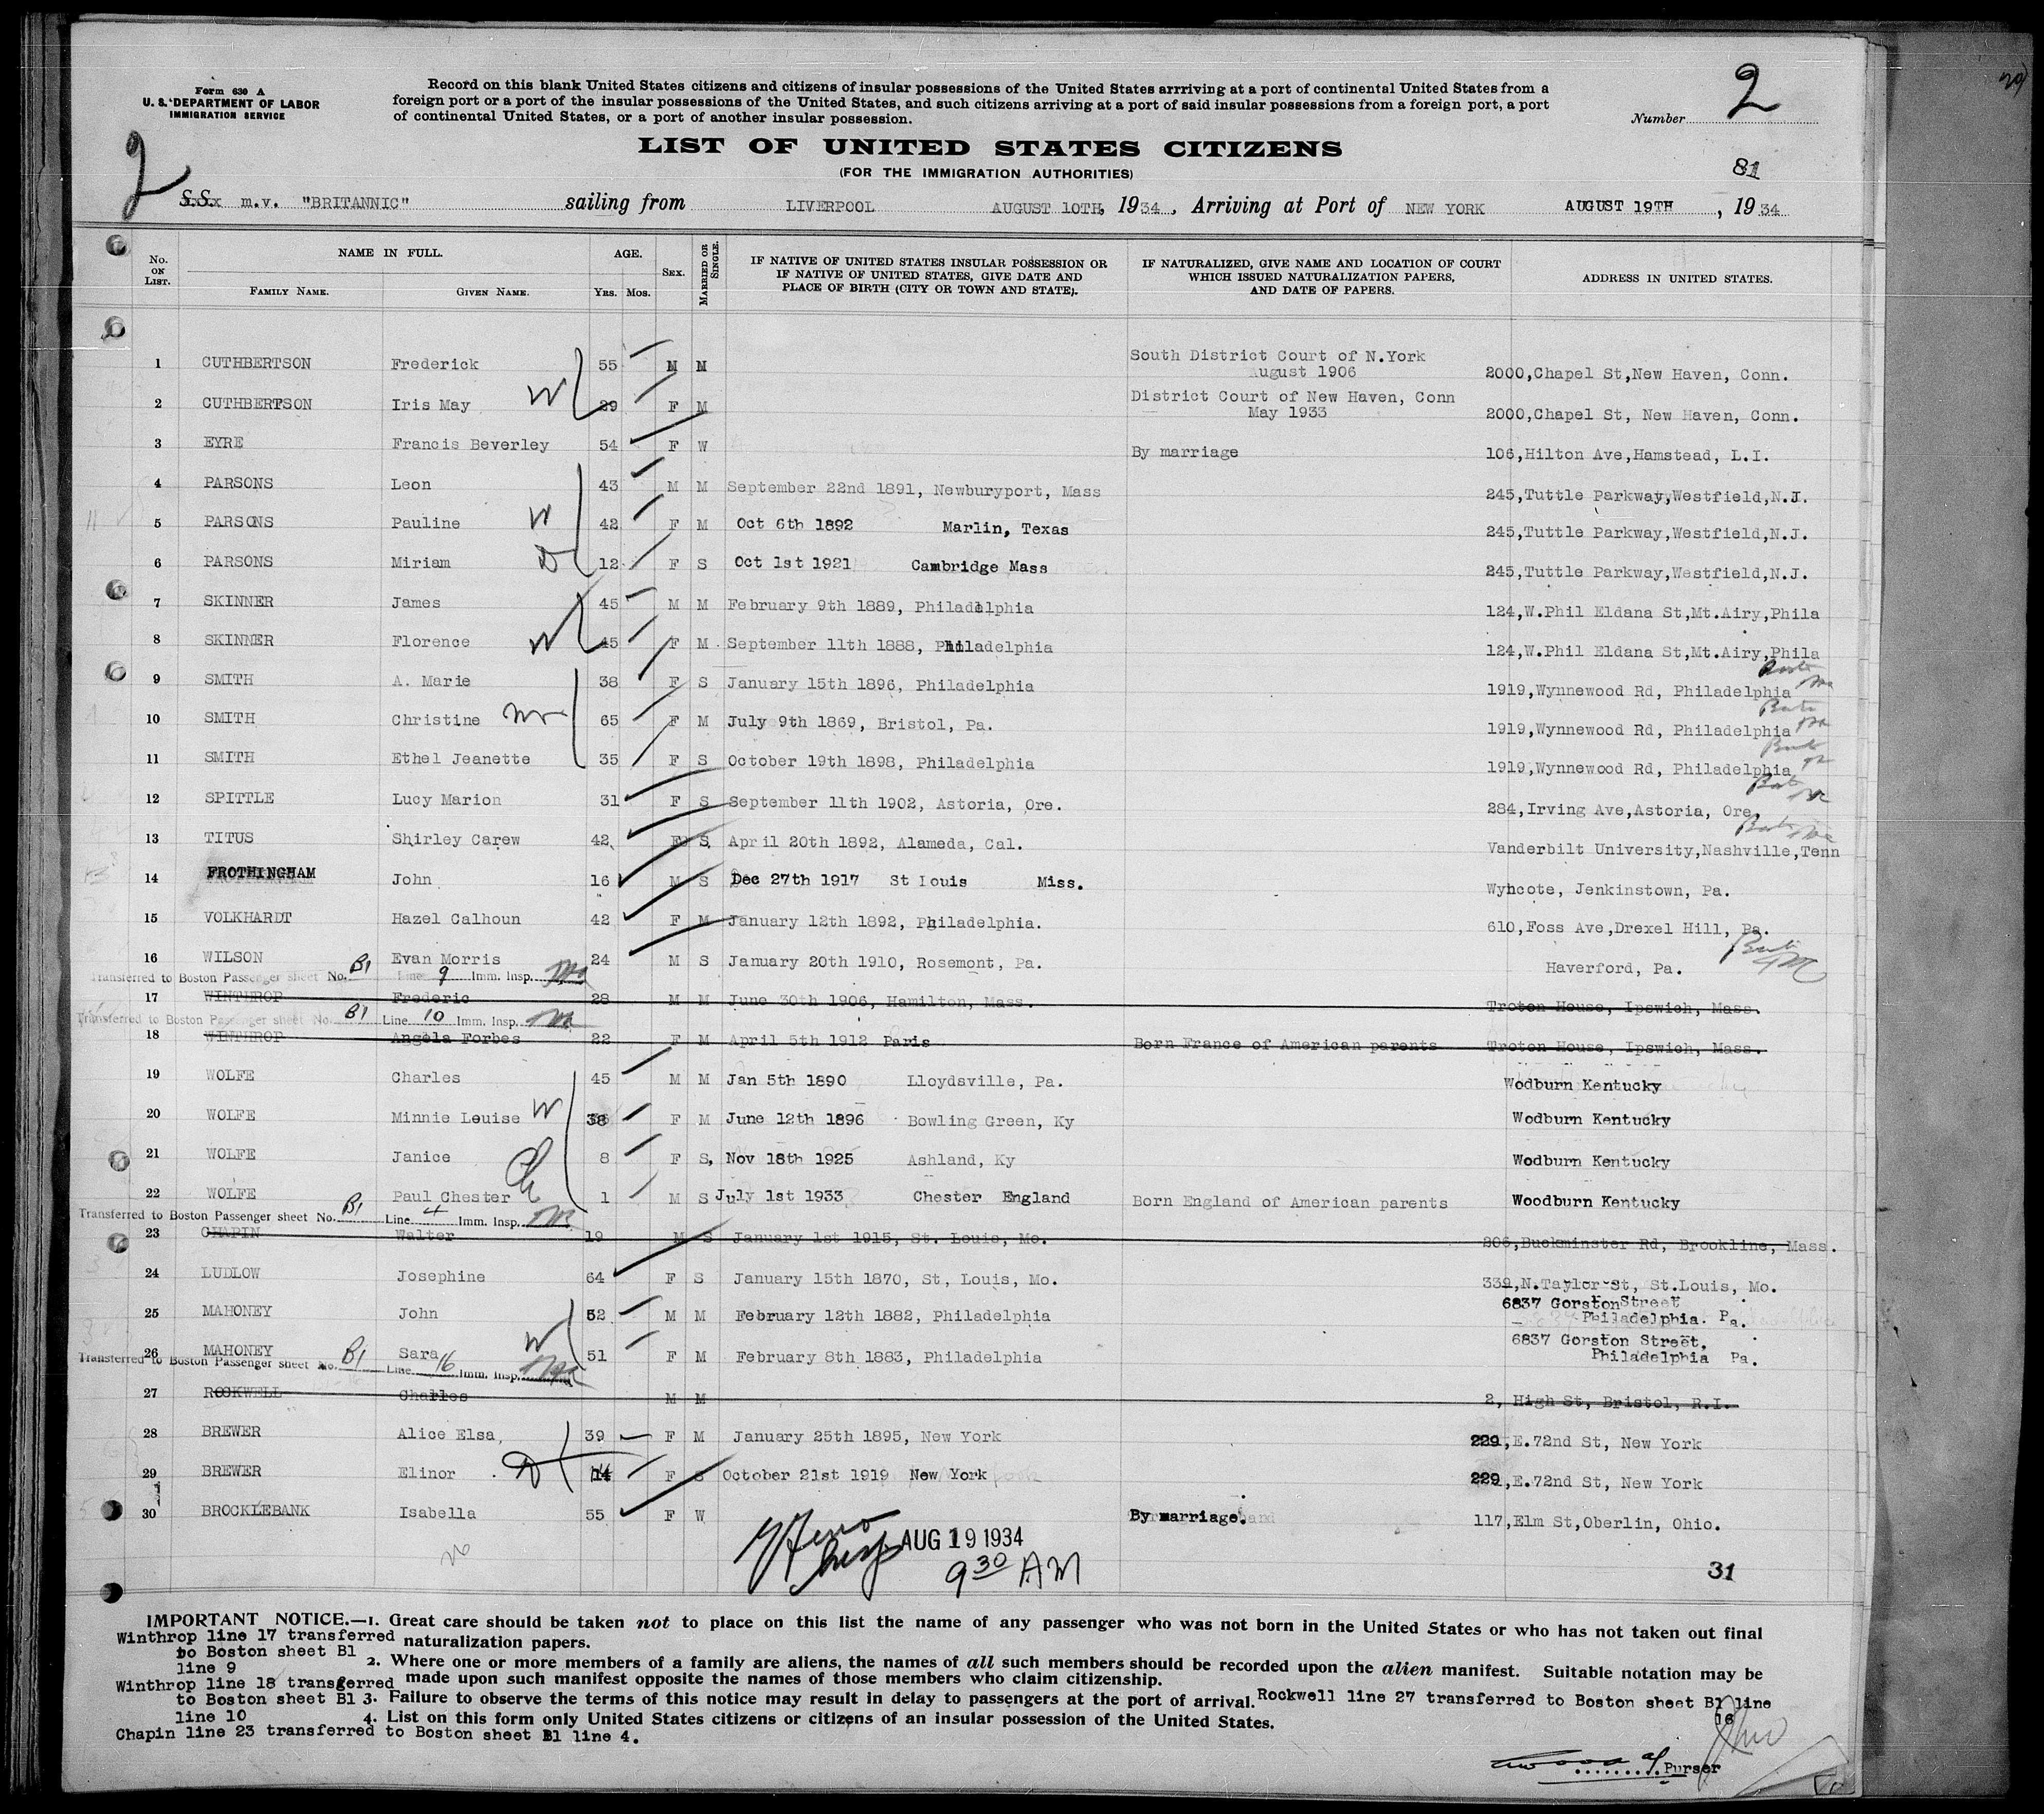 Form 630 A
U. S. DEPARTMENT OF LABOR
IMMIGRATION SERVICE
Record on this blank United States citizens and citizens of insular possessions of the United States arrriving at a port of continental United States from a
foreign port or a port of the insular possessions of the United States, and such citizens arriving at a port of said insular possessions from a foreign port, a port
of continental United States, or a port of another insular possession.
Number 2
LIST OF UNITED STATES CITIZENS
(FOR THE IMMIGRATION AUTHORITIES)
81
2
S.S. m.v. "BRITANNIC" sailing from LIVERPOOL AUGUST 10TH, 1934, Arriving at Port of NEW YORK AUGUST 19TH, 1934
No. ON LIST.
NAME IN FULL.
FAMILY NAME. GIVEN NAME.
AGE.
YRS. MOS.
SEX.
MARRIED OR SINGLE.
IF NATIVE OF UNITED STATES INSULAR POSSESSION OR
IF NATIVE OF UNITED STATES, GIVE DATE AND
PLACE OF BIRTH (CITY OR TOWN AND STATE).
IF NATURALIZED, GIVE NAME AND LOCATION OF COURT
WHICH ISSUED NATURALIZATION PAPERS,
AND DATE OF PAPERS.
ADDRESS IN UNITED STATES.
1 CUTHBERTSON Frederick 55 M M South District Court of N.York
August 1906 2000,Chapel St,New Haven, Conn.
2 CUTHBERTSON Iris May W 29 F M District Court of New Haven, Conn
May 1933 2000,Chapel St, New Haven, Conn.
3 EYRE Francis Beverley 54 F W By marriage 106,Hilton Ave,Hamstead, L.I.
4 PARSONS Leon 43 M M September 22nd 1891, Newburyport, Mass 245,Tuttle Parkway,Westfield,N.J.
5 PARSONS Pauline W 42 F M Oct 6th 1892 Marlin, Texas 245,Tuttle Parkway,Westfield,N.J.
6 PARSONS Miriam D 12 F S Oct 1st 1921 Cambridge Mass 245,Tuttle Parkway,Westfield,N.J.
7 SKINNER James 45 M M February 9th 1889, Philadelphia 124,W.Phil Eldana St,Mt.Airy,Phila
8 SKINNER Florence W 45 F M September 11th 1888, Philadelphia 124,W.Phil Eldana St,Mt.Airy,Phila
9 SMITH A. Marie 38 F S January 15th 1896, Philadelphia 1919,Wynnewood Rd, Philadelphia
10 SMITH Christine 65 F M July 9th 1869, Bristol, Pa. 1919,Wynnewood Rd, Philadelphia
11 SMITH Ethel Jeanette 35 F S October 19th 1898, Philadelphia 1919,Wynnewood Rd, Philadelphia
12 SPITTLE Lucy Marion 31 F S September 11th 1902, Astoria, Ore. 284,Irving Ave,Astoria, Ore
13 TITUS Shirley Carew 42 F S April 20th 1892, Alameda, Cal. Vanderbilt University,Nashville,Tenn
14 FROTHINGHAM John 16 M S Dec 27th 1917 St Louis Miss. Wyhcote, Jenkinstown, Pa.
15 VOLKHARDT Hazel Calhoun 42 F M January 12th 1892, Philadelphia. 610,Foss Ave,Drexel Hill, Pa.
16 WILSON Evan Morris 24 M S January 20th 1910, Rosemont, Pa. Haverford, Pa.
Transferred to Boston Passenger sheet No. B1 Line 9 Imm. Insp.
17 WINTHROP Frederic 28 M M June 30th 1906, Hamilton, Mass. Troton House, Ipswich, Mass.
Transferred to Boston Passenger sheet No. B1 Line 10 Imm. Insp.
18 WINTHROP Angela Forbes 22 F M April 5th 1912 Paris Born France of American parents Troton House, Ipswich, Mass.
19 WOLFE Charles 45 M M Jan 5th 1890 Lloydsville, Pa. Wodburn Kentucky
20 WOLFE Minnie Louise W 38 F M June 12th 1896 Bowling Green, Ky Wodburn Kentucky
21 WOLFE Janice 8 F S, Nov 18th 1925 Ashland, Ky Wodburn Kentucky
22 WOLFE Paul Chester Ch 1 M S July 1st 1933 Chester England Born England of American parents Woodburn Kentucky
Transferred to Boston Passenger sheet No. B1 Line 4 Imm. Insp.
23 CHAPIN Walter 19 M S January 1st 1915, St. Louis, Mo. 206,Buckminster Rd, Brookline, Mass.
24 LUDLOW Josephine 64 F S January 15th 1870, St, Louis, Mo. 339,N.Taylor St, St.Louis, Mo.
25 MAHONEY John 52 M M February 12th 1882, Philadelphia 6837 Gorston Street
Philadelphia. Pa.
26 MAHONEY Sara W 51 F M February 8th 1883, Philadelphia 6837 Gorston Street.
Philadelphia Pa.
Transferred to Boston Passenger sheet No. B1 Line 16 Imm. Insp.
27 ROCKWELL Charles M M 2, High St, Bristol, R.I.
28 BREWER Alice Elsa, 39 F M January 25th 1895, New York 229,E.72nd St, New York
29 BREWER Elinor D 14 F S October 21st 1919 New York 229,E.72nd St, New York
30 BROCKLEBANK Isabella 55 F W By marriage. 117,Elm St,Oberlin, Ohio.
AUG 19 1934
9 30 AM
31
IMPORTANT NOTICE.—1. Great care should be taken not to place on this list the name of any passenger who was not born in the United States or who has not taken out final
naturalization papers.
2. Where one or more members of a family are aliens, the names of all such members should be recorded upon the alien manifest. Suitable notation may be
made upon such manifest opposite the names of those members who claim citizenship.
3. Failure to observe the terms of this notice may result in delay to passengers at the port of arrival.
4. List on this form only United States citizens or citizens of an insular possession of the United States.
Winthrop line 17 transferred
to Boston sheet B1
line 9
Winthrop line 18 transferred
to Boston sheet B1
line 10
Chapin line 23 transferred to Boston sheet B1 line 4.
Rockwell line 27 transferred to Boston sheet B1 line
16
Purser